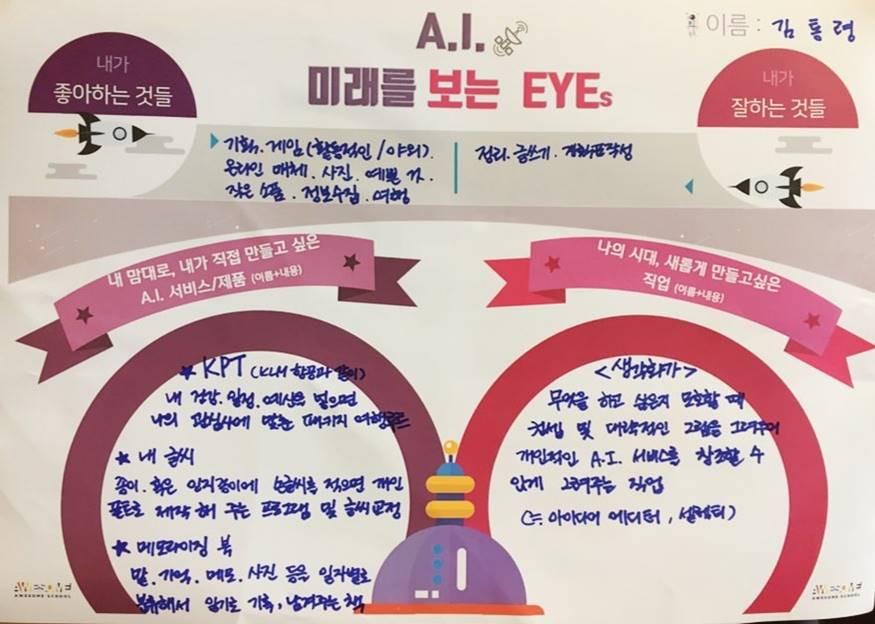 A.I.
미래를 보는 EYEs
이름 : 김통령
내가
좋아하는 것들
내가
잘하는 것들
기획. 게임(활동적인/야외).
온라인 매체. 사진. 예쁜 것.
작은 소품. 정보수집. 여행
정리. 글쓰기. 계획표작성
내 맘대로, 내가 직접 만들고 싶은
A.I. 서비스/제품 (이름+내용)
나의 시대, 새롭게 만들고싶은
직업 (이름+내용)
★ KPT (KLM 항공과 같이)
내 건강. 일정. 예산을 넣으면
나의 관심사에 맞춘 패키지 여행루트
★ 내 글씨
종이. 혹은 인지종이에 손글씨를 적으면 개인
폰트로 제작 해 주는 프로그램 및 글씨 교정
★ 메모라이징 북
말. 기억. 메모. 사진 등을 일자별로
분류해서 일기로 기록, 남겨주는 책
<생각화가>
무엇을 하고 싶은지 모호할 때
컨셉 및 대략적인 그림을 그려주어
개인적인 A.I. 서비스를 창조할 수
있게 그려주는 직업
(= 아이디어 에디터, 셀렉터)
AWESOME SCHOOL
AWESOME SCHOOL